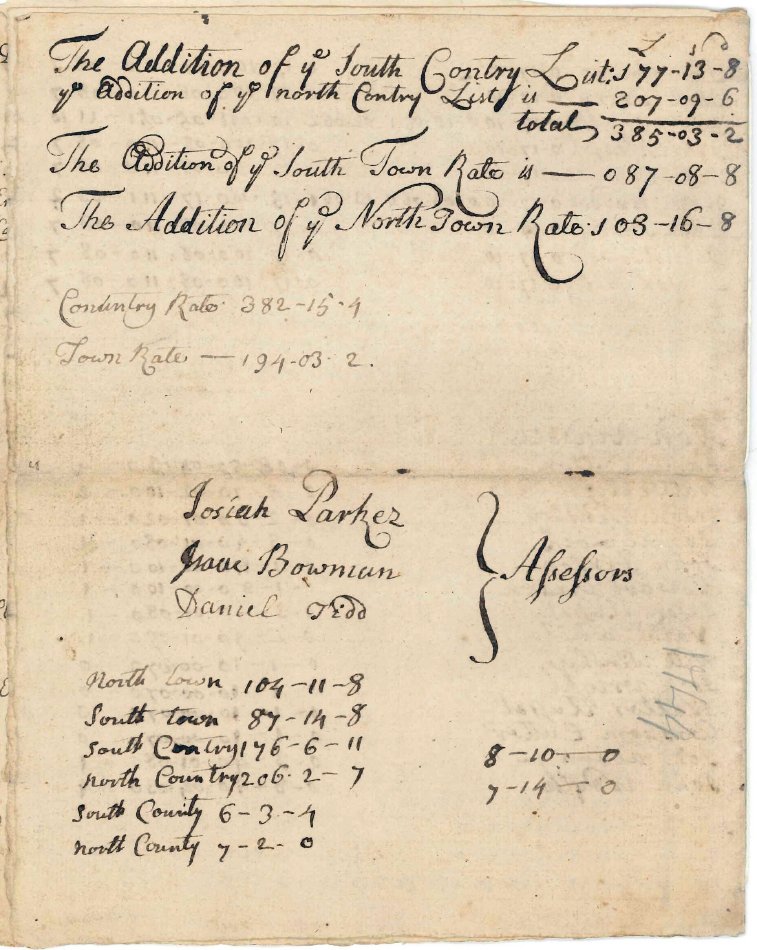 £ s d
The Addition of yᵉ South Contry List: 177-13-8
yᵉ Addition of yᵉ north Contry List is — 207-09-6
total 385-03-2
The Addition of yᵉ South Town Rate is — 087-08-8
The Addition of yᵉ North Town Rate: 103-16-8
Conuntry Rate 382-15-4
Town Rate — 194-03-2.
Josiah Parker
Isaac Bowman
Daniel Tidd
Assessors
1744
North town 104-11-8
South town 87-14-8
South Contry 176-6-11
North Country 206-2-7
South County 6-3-4
North County 7-2-0
8-10-0
7-14-0